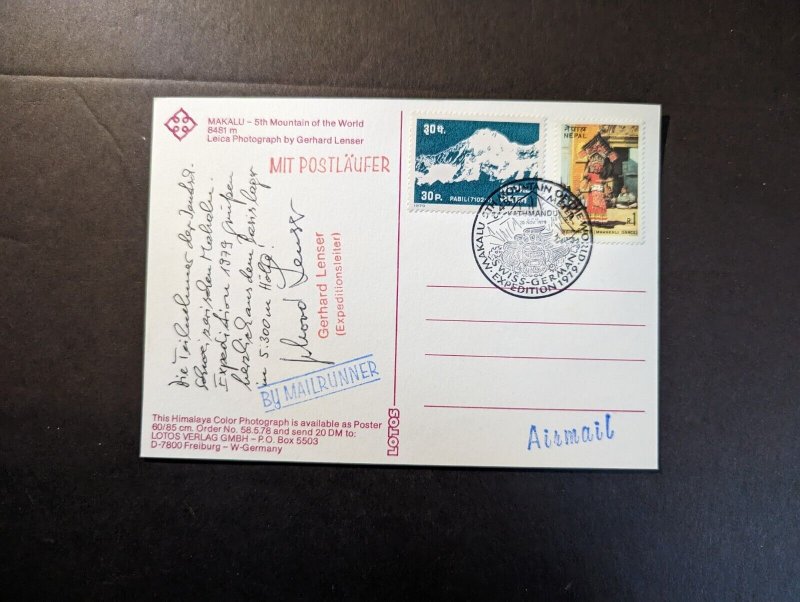 MAKALU – 5th Mountain of the World
8481 m
Leica Photograph by Gerhard Lenser
MIT POSTLÄUFER
Die Teilnehmer der Deutsch-
Schweizerischen Makalu-
Expedition 1979 grüßen
herzlich aus dem Basislager
in 5.300 m Höhe!
Gerhard Lenser
Gerhard Lenser
(Expeditionsleiter)
BY MAILRUNNER
This Himalaya Color Photograph is available as Poster
60/85 cm. Order No. 58.5.78 and send 20 DM to:
LOTOS VERLAG GMBH – P.O. Box 5503
D-7800 Freiburg – W-Germany
LOTOS
30 प.
30 P.
PABIL (7102
1979
नेपाल
NEPAL
MAKALU 5TH MOUNTAIN OF THE WORLD
KATHMANDU
SWISS-GERMAN
EXPEDITION 1979
Airmail